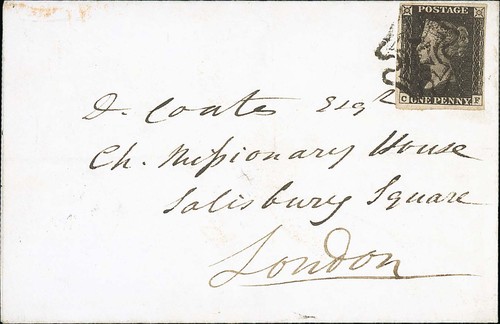 POSTAGE
C ONE PENNY F
D. Coates Esqr
Ch. Missionary House
Salisbury Square
London